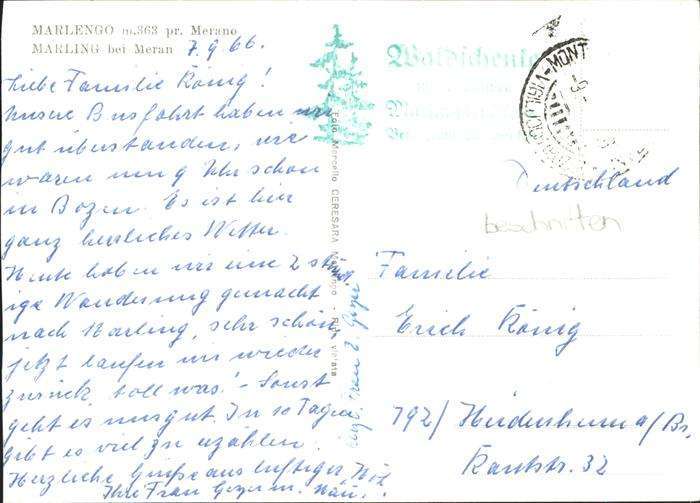 MARLENGO m.363 pr. Merano
MARLING bei Meran 7.9.66.
Liebe Familie König!
Unsere Busfahrt haben wir
gut überstanden, wir
waren um 9 Uhr schon
in Bozen. Es ist hier
ganz herrliches Wetter.
Heute haben wir eine 2 stünd
ige Wanderung gemacht
nach Marling, sehr schön,
jetzt laufen wir wieder
zurück, toll was! - Sonst
geht es uns gut. In 10 Tagen
gibt es viel zu erzählen.
Herzliche Grüße aus luftiger Höh
Ihre Frau
Foto Marcello CERESARA
Waldschenke
Deutschland
beschnitten
Familie
Erich König
792/ Heidenheim a/Br.
Kantstr. 32